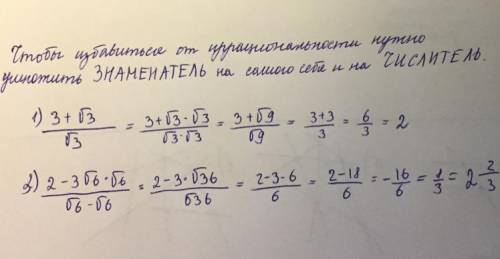 Чтобы избавиться от иррациональности нужно
умножить ЗНАМЕНАТЕЛЬ на самого себя и на ЧИСЛИТЕЛЬ.
1) (3+√3)/√3 = (3+√3·√3)/(√3·√3) = (3+√9)/√9 = (3+3)/3 = 6/3 = 2
2) (2-3√6·√6)/(√6-√6) = (2-3·√36)/√36 = (2-3·6)/6 = (2-18)/6 = -16/6 = 8/3 = 2 2/3